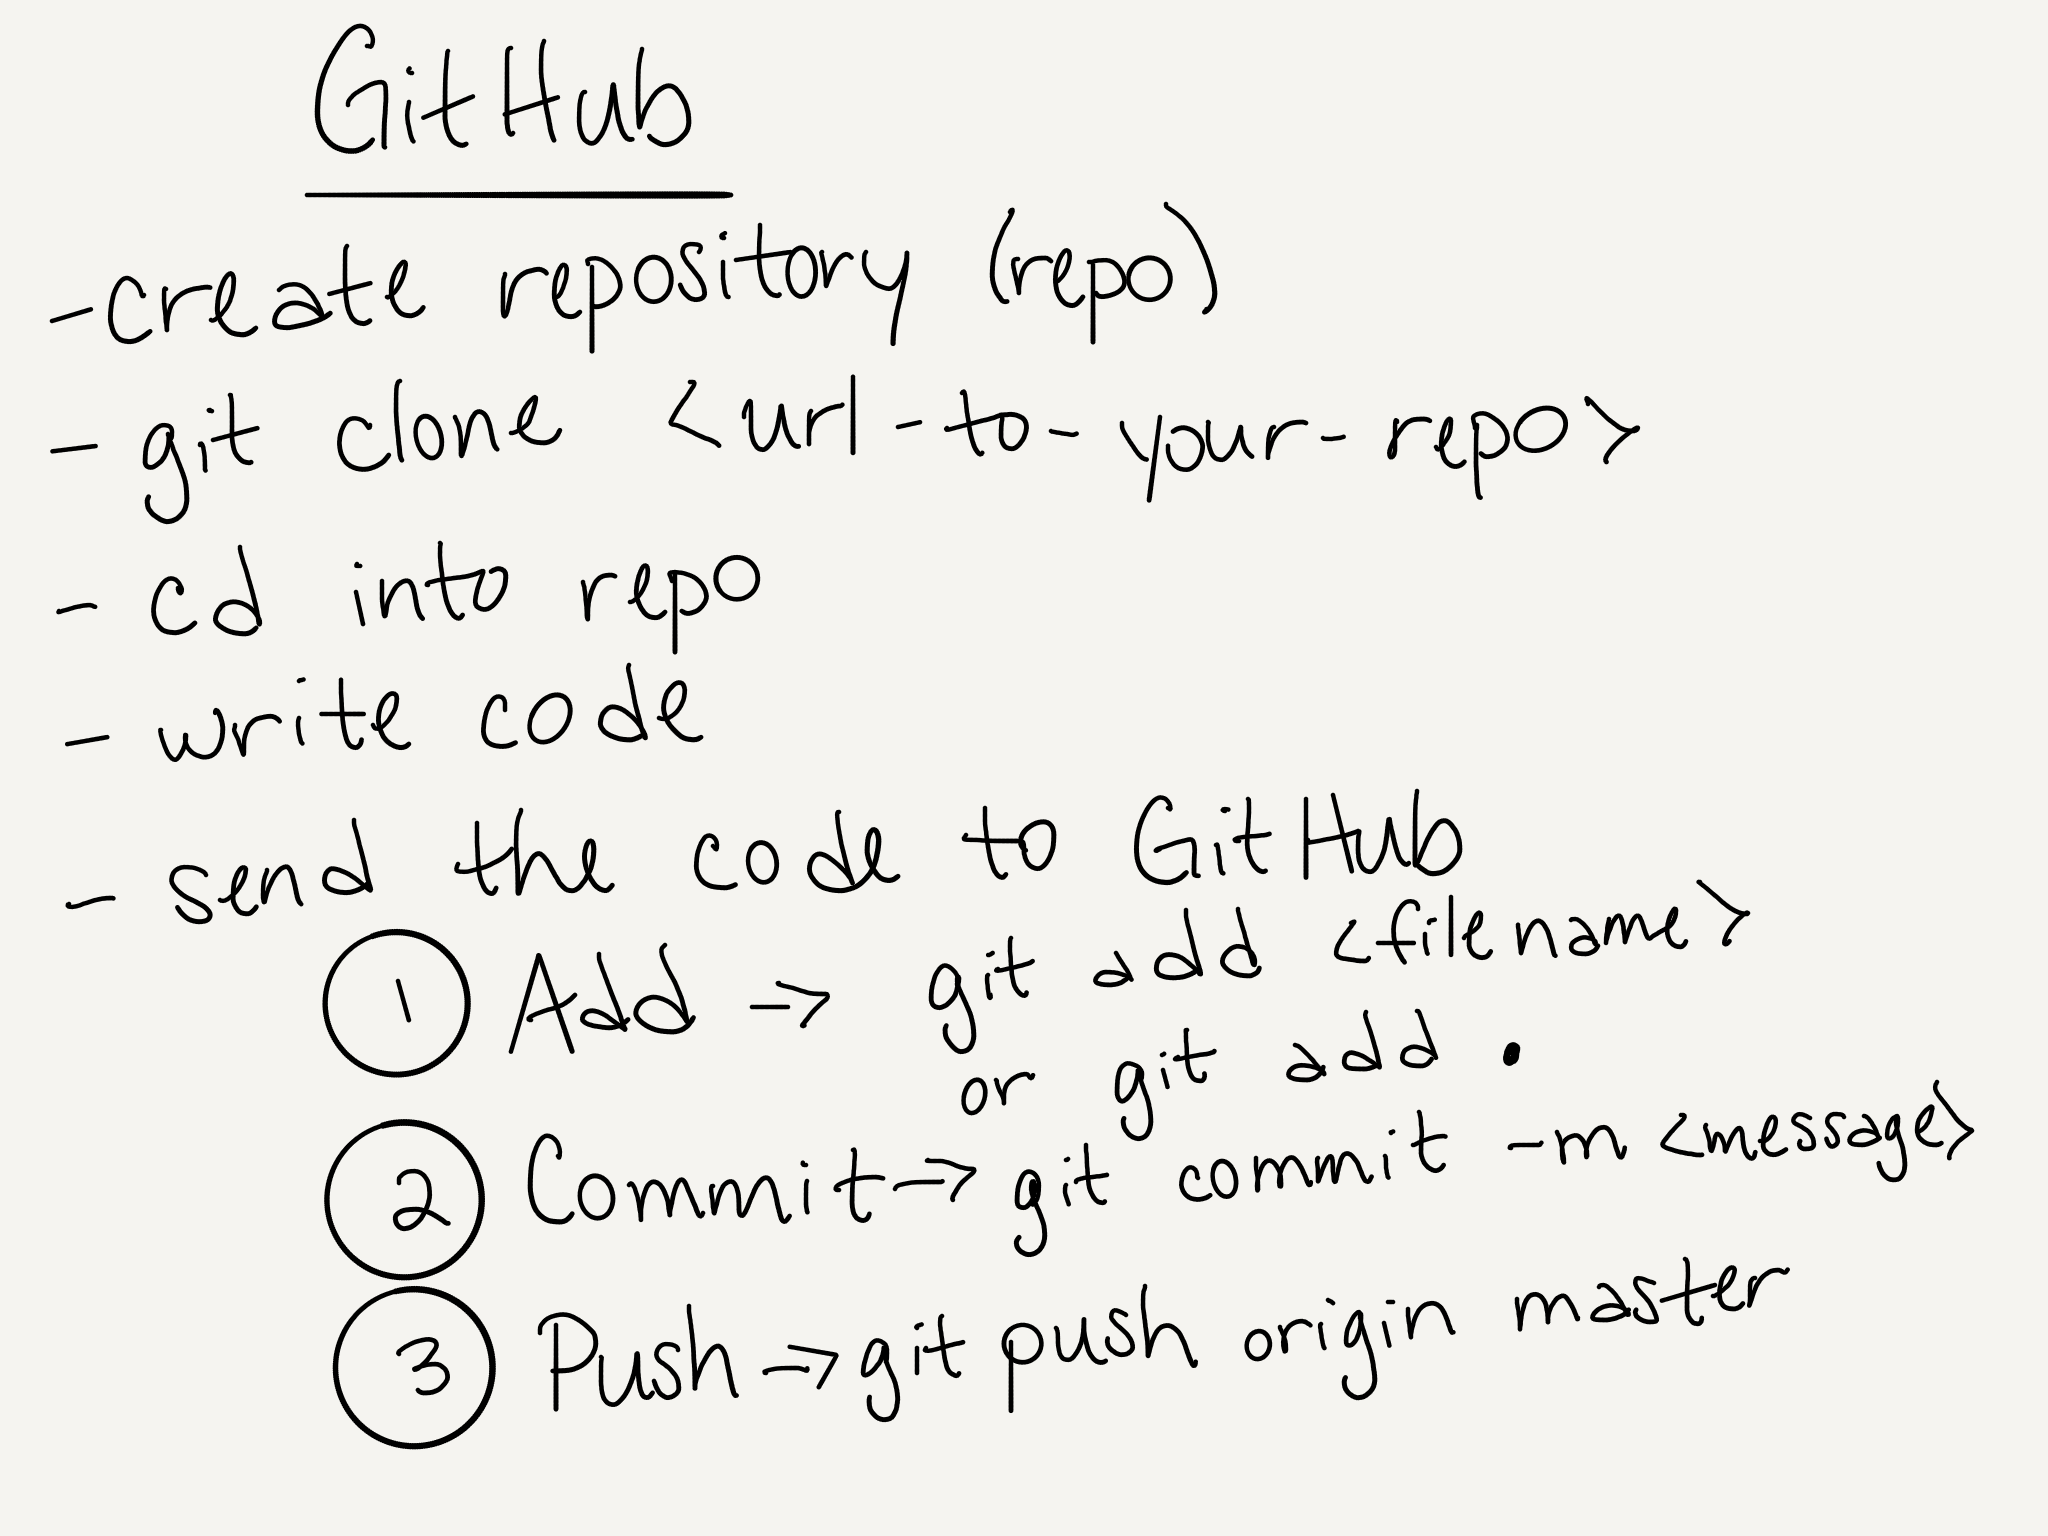 GitHub
-create repository (repo)
- git clone <url-to-your-repo>
- cd into repo
- write code
- send the code to GitHub
1 Add -> git add <filename>
or git add .
2 Commit-> git commit -m <message>
3 Push -> git push origin master